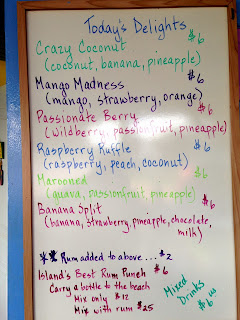 Today's Delights
Crazy Coconut $6
(coconut, banana, pineapple)
Mango Madness $6
(mango, strawberry, orange)
Passionate Berry $6
(Wildberry, passionfruit, pineapple)
Raspberry Ruffle $6
(raspberry, peach, coconut)
Marooned $6
(guava, passionfruit, pineapple)
Banana Split $6
(banana, strawberry, pineapple, chocolate, milk)
** Rum added to above... $2
Island's Best Rum Punch $6
Carry a bottle to the beach
Mix only $12
Mix with rum $25
Mixed
Drinks
$6